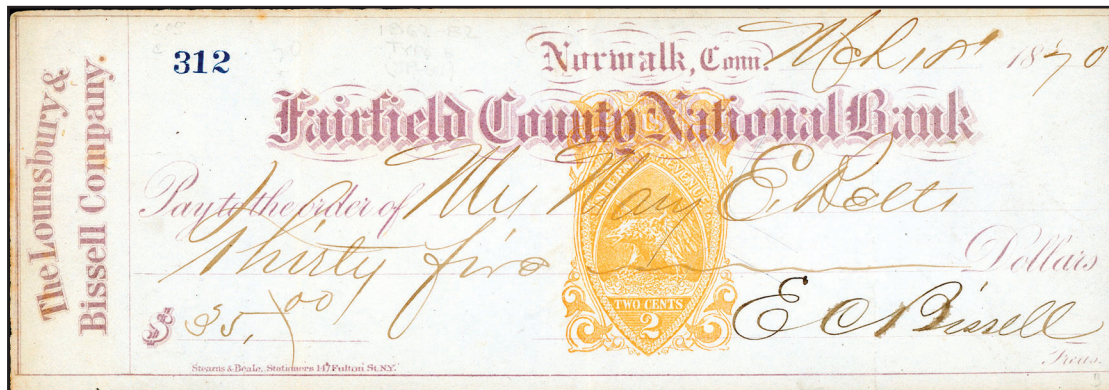 The Lounsbury &
Bissell Company.
312
Norwalk, Conn. Mch 18th 1870
Fairfield County National Bank
Pay to the order of Mrs Mary E. Betts
Thirty five Dollars
$ 35,00
U.S.
INTERNAL REVENUE
TWO CENTS
2
E C Bissell
Treas.
Stearns & Beale, Stationers 147 Fulton St. N.Y.